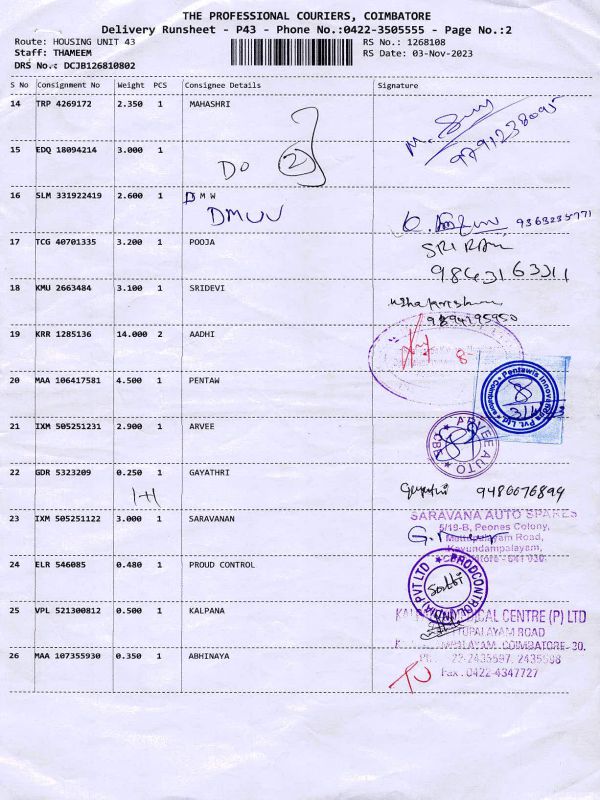 THE PROFESSIONAL COURIERS, COIMBATORE
Delivery Runsheet - P43 - Phone No.:0422-3505555 - Page No.:2
Route: HOUSING UNIT 43 RS No.: 1268108
Staff: THAMEEM RS Date: 03-Nov-2023
DRS No.: DCJB126810802
S No Consignment No Weight PCS Consignee Details Signature
14 TRP 4269172 2.350 1 MAHASHRI
9791238095
15 EDQ 18094214 3.000 1
Do 2
16 SLM 331922419 2.600 1 D M W
DMUU
9363235771
17 TCG 40701335 3.200 1 POOJA SRI RAM
9843163311
18 KMU 2663484 3.100 1 SRIDEVI
9894195950
19 KRR 1285136 14.000 2 AADHI
8-
20 MAA 106417581 4.500 1 PENTAW
Pentawis Innovations Pvt. Ltd
21 IXM 505251231 2.900 1 ARVEE
ARVEE AUTO CBE
22 GDR 5323209 0.250 1 GAYATHRI
1+1 Gayathri 9486676899
23 IXM 505251122 3.000 1 SARAVANAN
SARAVANA AUTO SPARES
5/19-B, Peones Colony,
Mettupalayam Road,
Kavundampalayam,
Coimbatore - 641 030.
24 ELR 546085 0.480 1 PROUD CONTROL
PRODCONTROL (INDIA) PVT LTD
25 VPL 521300812 0.500 1 KALPANA
MEDICAL CENTRE (P) LTD
METTUPALAYAM ROAD
COIMBATORE-30.
26 MAA 107355930 0.350 1 ABHINAYA
22-2435597, 2435598
Fax : 0422-4347727